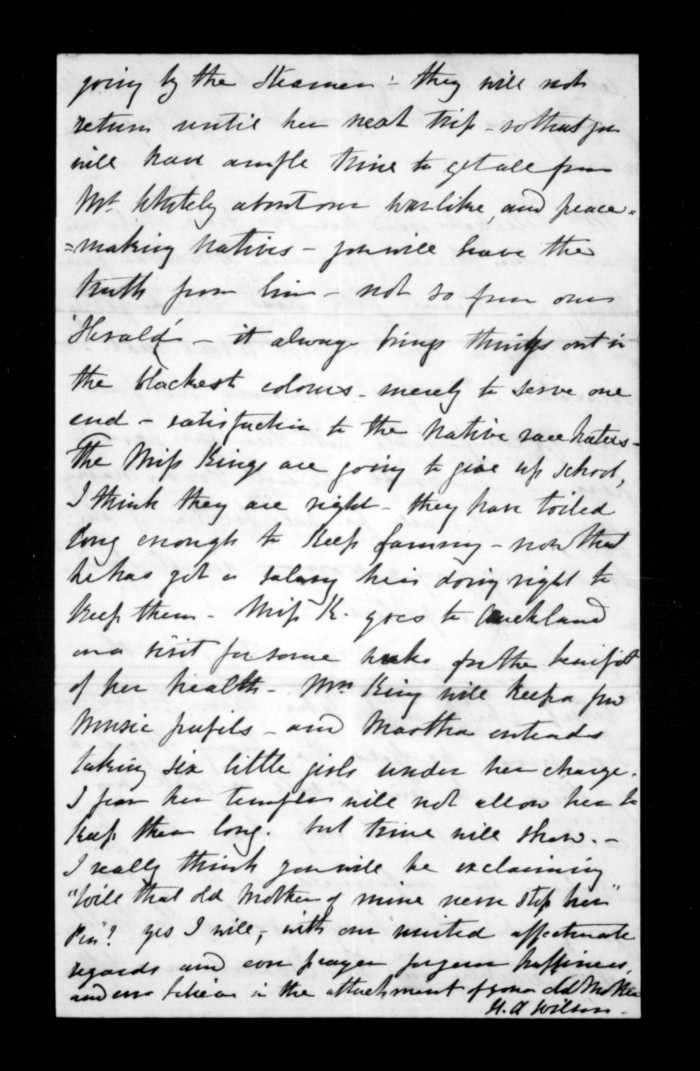 going by the Steamer : they will not
return until her next trip - so that you
will have ample time to get all from
Mr. Whitely about our warlike, and peace =
= making Natives - you will have the
truth from him - not so from our
'Herald' - it always brings things out in
the blackest colours - merely to serve one
end - satisfaction to the Native race haters -
The Miss Kings are going to give up school,
I think they are right - they have toiled
long enough to keep - now that
he has got a salary he is doing right to
keep them - Miss K. goes to Auckland
on a visit for some weeks for the benifit
of her health - Mrs King will keep a few
Music pupils - and Martha intends
taking six little girls under her charge.
I fear her temper will not allow her to
keep them long. but time will show. -
I really think you will be exclaiming
"Will that old Mother of mine never stop her"
Pen"? yes I will, with our united affectionate
regards and our prayer for your happiness,
and believe in the attachment of your old Mother
H. A Wilson.